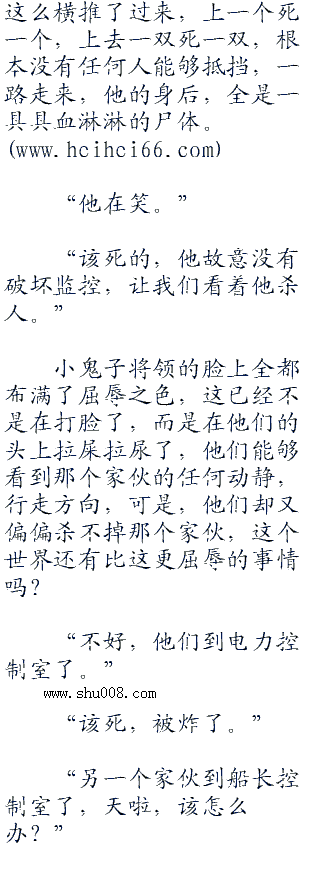 这么横推了过来，上一个死
一个，上去一双死一双，根
本没有任何人能够抵挡，一
路走来，他的身后，全是一
具具血淋淋的尸体。
(www.hcihci66.com)
“他在笑。”
“该死的，他故意没有
破坏监控，让我们看着他杀
人。”
小鬼子将领的脸上全都
布满了屈辱之色，这已经不
是在打脸了，而是在他们的
头上拉屎拉尿了，他们能够
看到那个家伙的任何动静，
行走方向，可是，他们却又
偏偏杀不掉那个家伙，这个
世界还有比这更屈辱的事情
吗？
“不好，他们到电力控
制室了。”
www.shu008.com
“该死，被炸了。”
“另一个家伙到船长控
制室了，天啦，该怎么
办？”